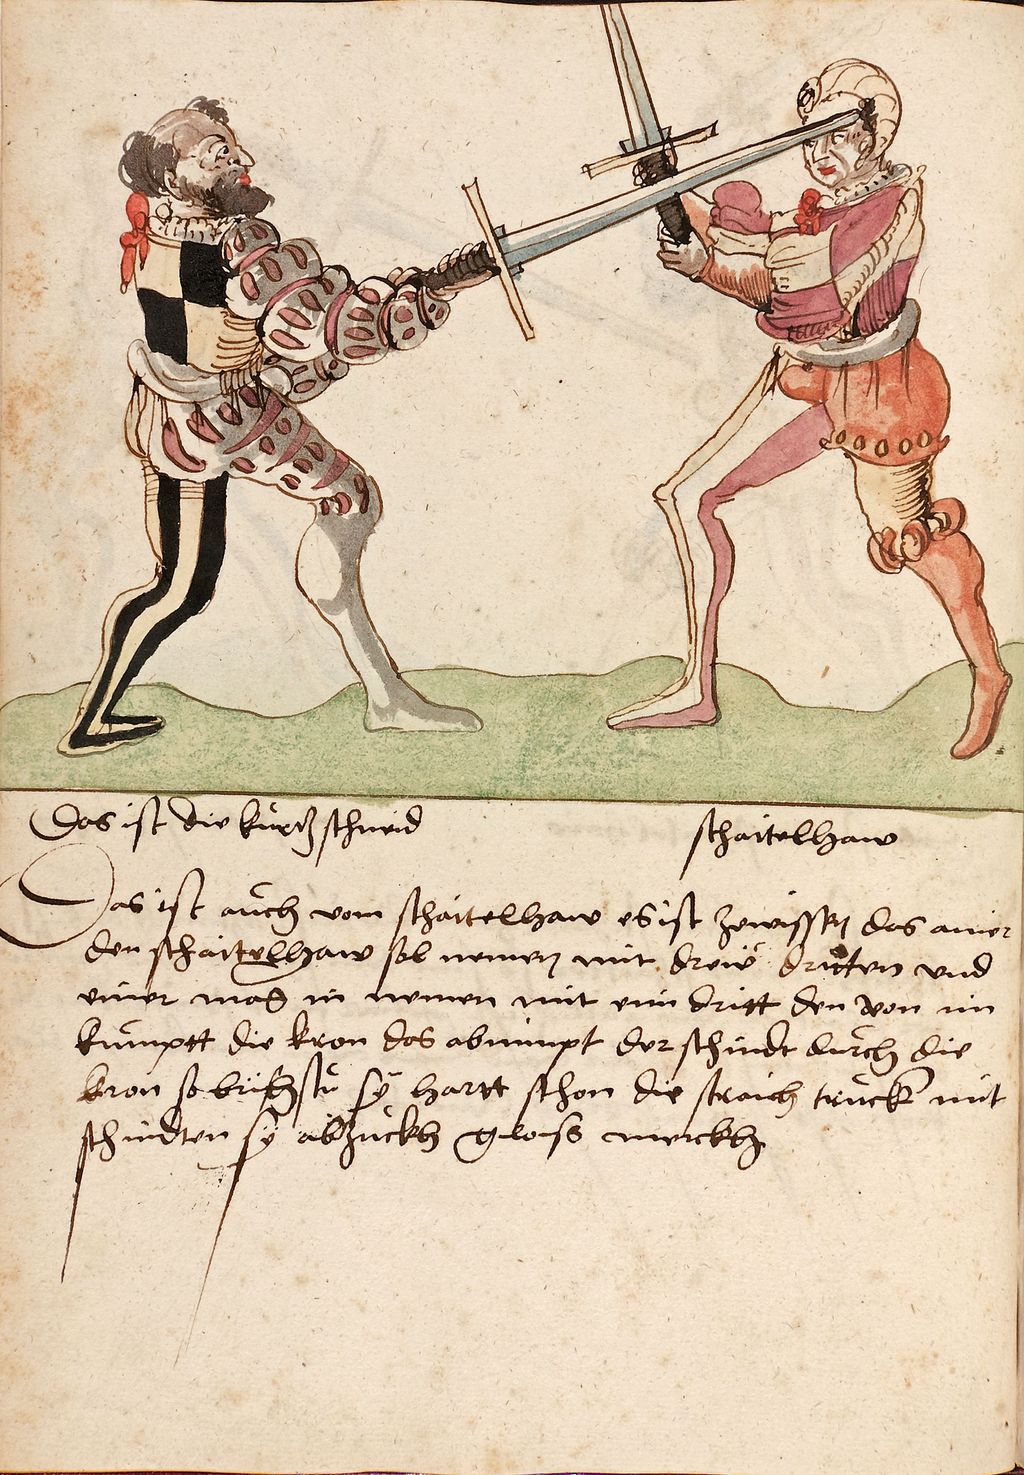 Das ist die kürtz schneid
schaitelhaw
Das ist aůch vom schaitelhaw es ist zewissen das ainer
den schaitelhaw sol nemen mit dreÿ dritten vnd
einer mag in nemen mit ein dritt den von im
kůmptt die kron das abnimpt der schnidt důrch die
kron so brichstu sÿ hartt schon die straich trůckh mit
schnidten sÿ abzůckh gloiss merckh